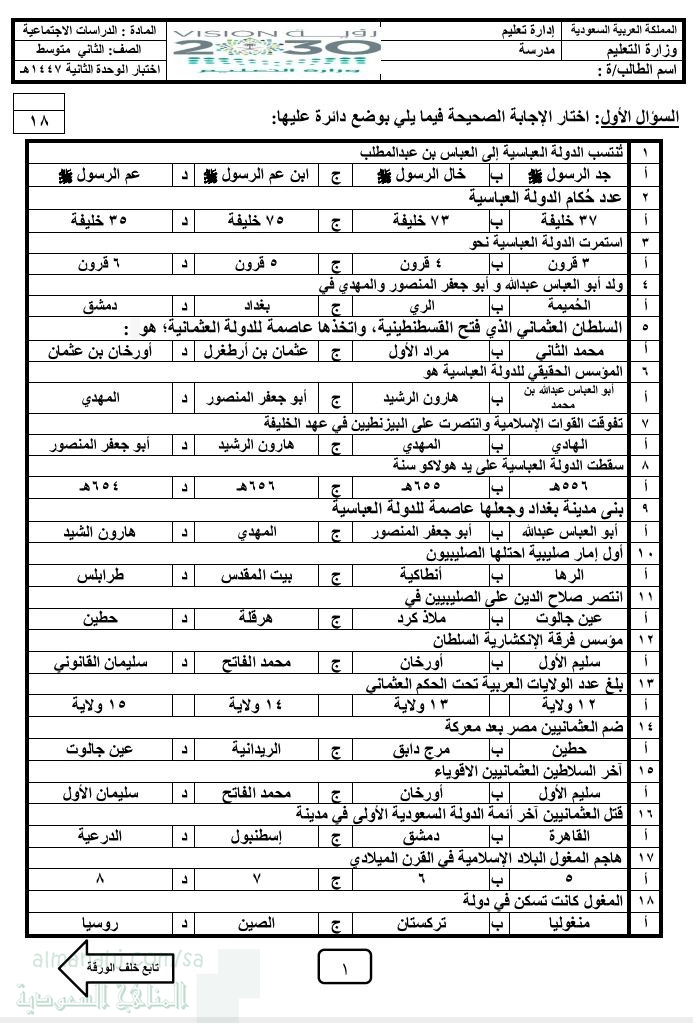 المملكة العربية السعودية
وزارة التعليم
اسم الطالب/ة :
إدارة تعليم
مدرسة
رؤيــة VISION
2030
وزارة التعليم
المادة : الدراسات الاجتماعية
الصف: الثاني متوسط
اختبار الوحدة الثانية ١٤٤٧هـ
السؤال الأول: اختار الإجابة الصحيحة فيما يلي بوضع دائرة عليها:
١٨
١ تُنتسب الدولة العباسية إلى العباس بن عبدالمطلب
أ جد الرسول ﷺ ب خال الرسول ﷺ ج ابن عم الرسول ﷺ د عم الرسول ﷺ
٢ عدد حُكام الدولة العباسية
أ ٣٧ خليفة ب ٧٣ خليفة ج ٧٥ خليفة د ٣٥ خليفة
٣ استمرت الدولة العباسية نحو
أ ٣ قرون ب ٤ قرون ج ٥ قرون د ٦ قرون
٤ ولد أبو العباس عبدالله و أبو جعفر المنصور والمهدي في
أ الحُميمة ب الري ج بغداد د دمشق
٥ السلطان العثماني الذي فتح القسطنطينية، واتخذها عاصمة للدولة العثمانية؛ هو :
أ محمد الثاني ب مراد الأول ج عثمان بن أرطغرل د أورخان بن عثمان
٦ المؤسس الحقيقي للدولة العباسية هو
أ أبو العباس عبدالله بن محمد ب هارون الرشيد ج أبو جعفر المنصور د المهدي
٧ تفوقت القوات الإسلامية وانتصرت على البيزنطيين في عهد الخليفة
أ الهادي ب المهدي ج هارون الرشيد د أبو جعفر المنصور
٨ سقطت الدولة العباسية على يد هولاكو سنة
أ ٥٥٦هـ ب ٦٥٥هـ ج ٦٥٦هـ د ٦٥٤هـ
٩ بنى مدينة بغداد وجعلها عاصمة للدولة العباسية
أ أبو العباس عبدالله ب أبو جعفر المنصور ج المهدي د هارون الشيد
١٠ أول إمار صليبية احتلها الصليبيون
أ الرها ب أنطاكية ج بيت المقدس د طرابلس
١١ انتصر صلاح الدين على الصليبيين في
أ عين جالوت ب ملاذ كرد ج هرقلة د حطين
١٢ مؤسس فرقة الإنكشارية السلطان
أ سليم الأول ب أورخان ج محمد الفاتح د سليمان القانوني
١٣ بلغ عدد الولايات العربية تحت الحكم العثماني
أ ١٢ ولاية ١٣ ولاية ١٤ ولاية ١٥ ولاية
١٤ ضم العثمانيين مصر بعد معركة
أ حطين ب مرج دابق ج الريدانية د عين جالوت
١٥ آخر السلاطين العثمانيين الاقوياء
أ سليم الأول ب أورخان ج محمد الفاتح د سليمان الأول
١٦ قتل العثمانيين آخر أئمة الدولة السعودية الأولى في مدينة
أ القاهرة ب دمشق ج إسطنبول د الدرعية
١٧ هاجم المغول البلاد الإسلامية في القرن الميلادي
أ ٥ ب ٦ ج ٧ د ٨
١٨ المغول كانت تسكن في دولة
أ منغوليا ب تركستان ج الصين د روسيا
١
تابع خلف الورقة
almanahj.com/sa
المناهج السعودية